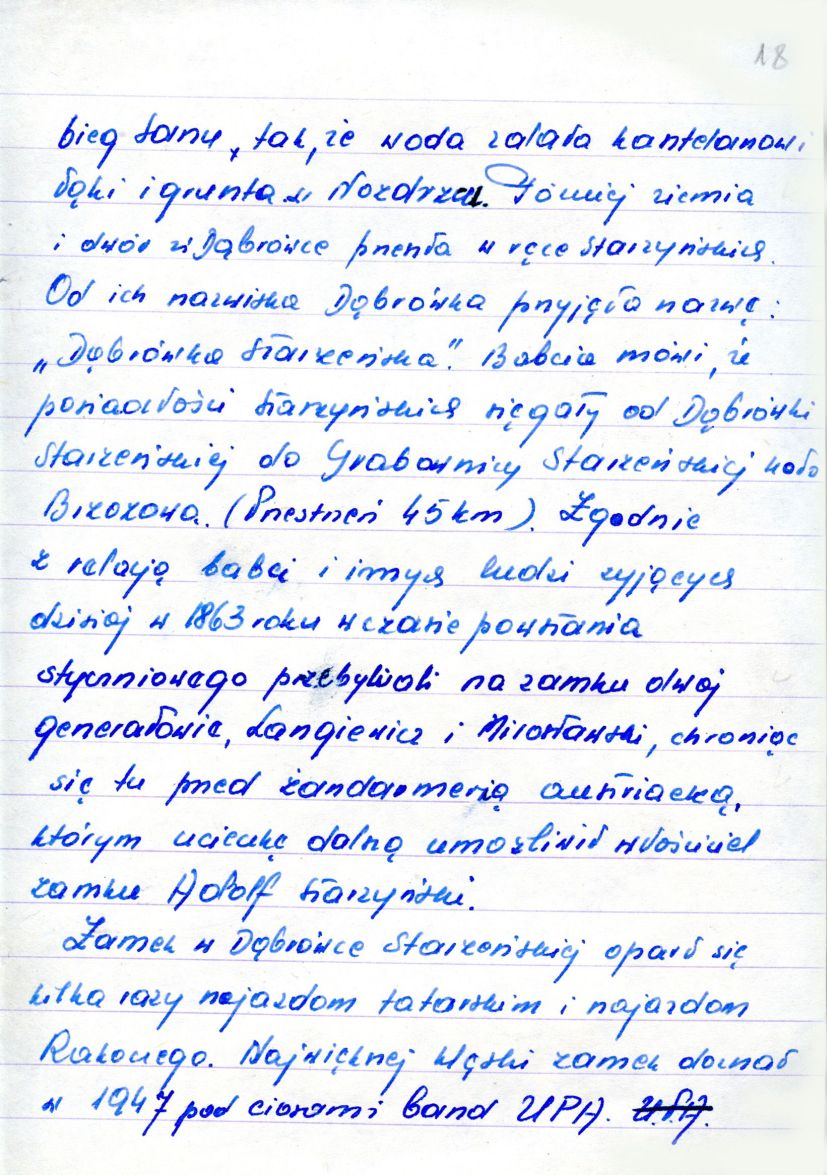 18
bieg Sanu, tak, że woda zalała kasztelanowi
łąki i grunta w Nozdrzcu. Później ziemia
i dwór w Dąbrówce przeszła w ręce Starzyńskich.
Od ich nazwiska Dąbrówka przyjęła nazwę:
„Dąbrówka Starzeńska". Babcia mówi, że
posiadłości Starzyńskich sięgały od Dąbrówki
Starzeńskiej do Grabownicy Starzeńskiej koło
Brzozowa. (Przestrzeń 45 km). Zgodnie
z relacją babci i innych ludzi żyjących
dzisiaj w 1863 roku w czasie powstania
styczniowego przebywali na zamku dwaj
generałowie, Langiewicz i Mirosławski, chroniąc
się tu przed żandarmerią austriacką,
którym ucieczkę dalszą umożliwił właściciel
zamku Adolf Starzyński.
Zamek w Dąbrówce Starzeńskiej oparł się
kilka razy najazdom tatarskim i najazdom
Rakoczego. Największej klęski zamek doznał
w 1947 pod ciosami band UPA. U.P.A.